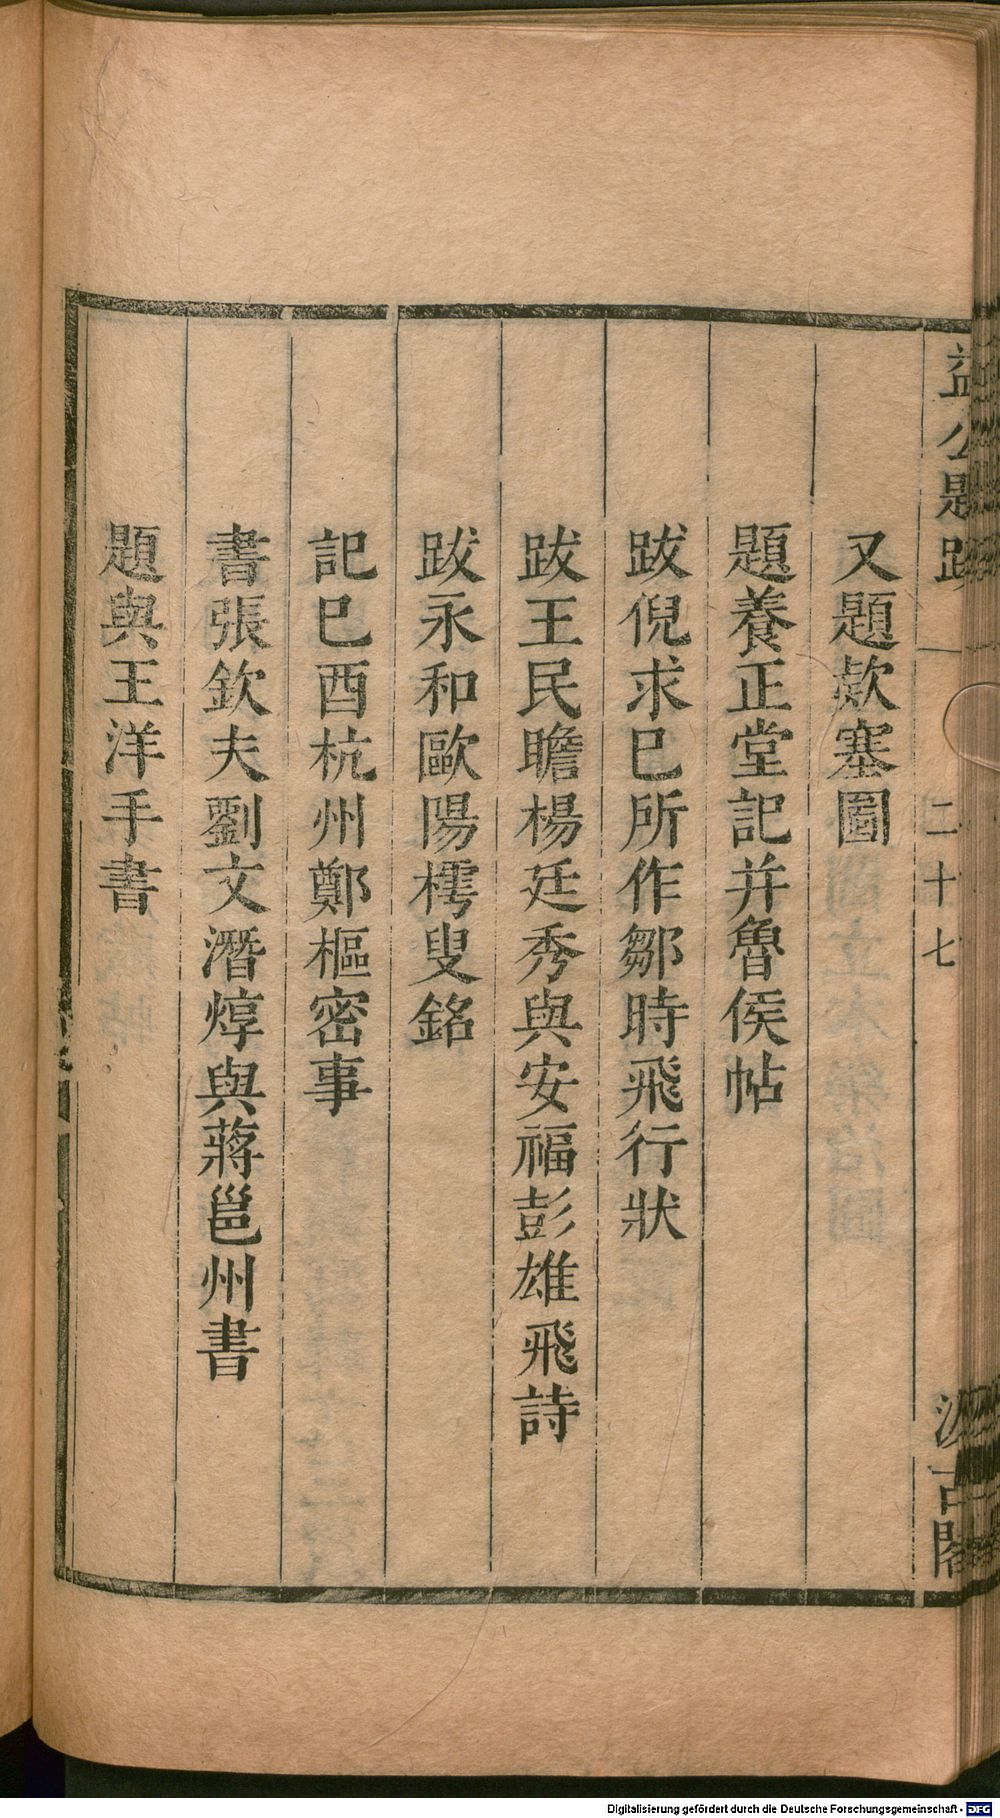 益公題跋 二十七 汲古閣
又題款塞圖
題養正堂記并魯侯帖
跋倪求己所作鄒時飛行狀
跋王民瞻楊廷秀與安福彭雄飛詩
跋永和歐陽樗叟銘
記己酉杭州鄭樞密事
書張欽夫劉文潛焞與蔣邕州書
題與王洋手書
Digitalisierung gefördert durch die Deutsche Forschungsgemeinschaft - DFG